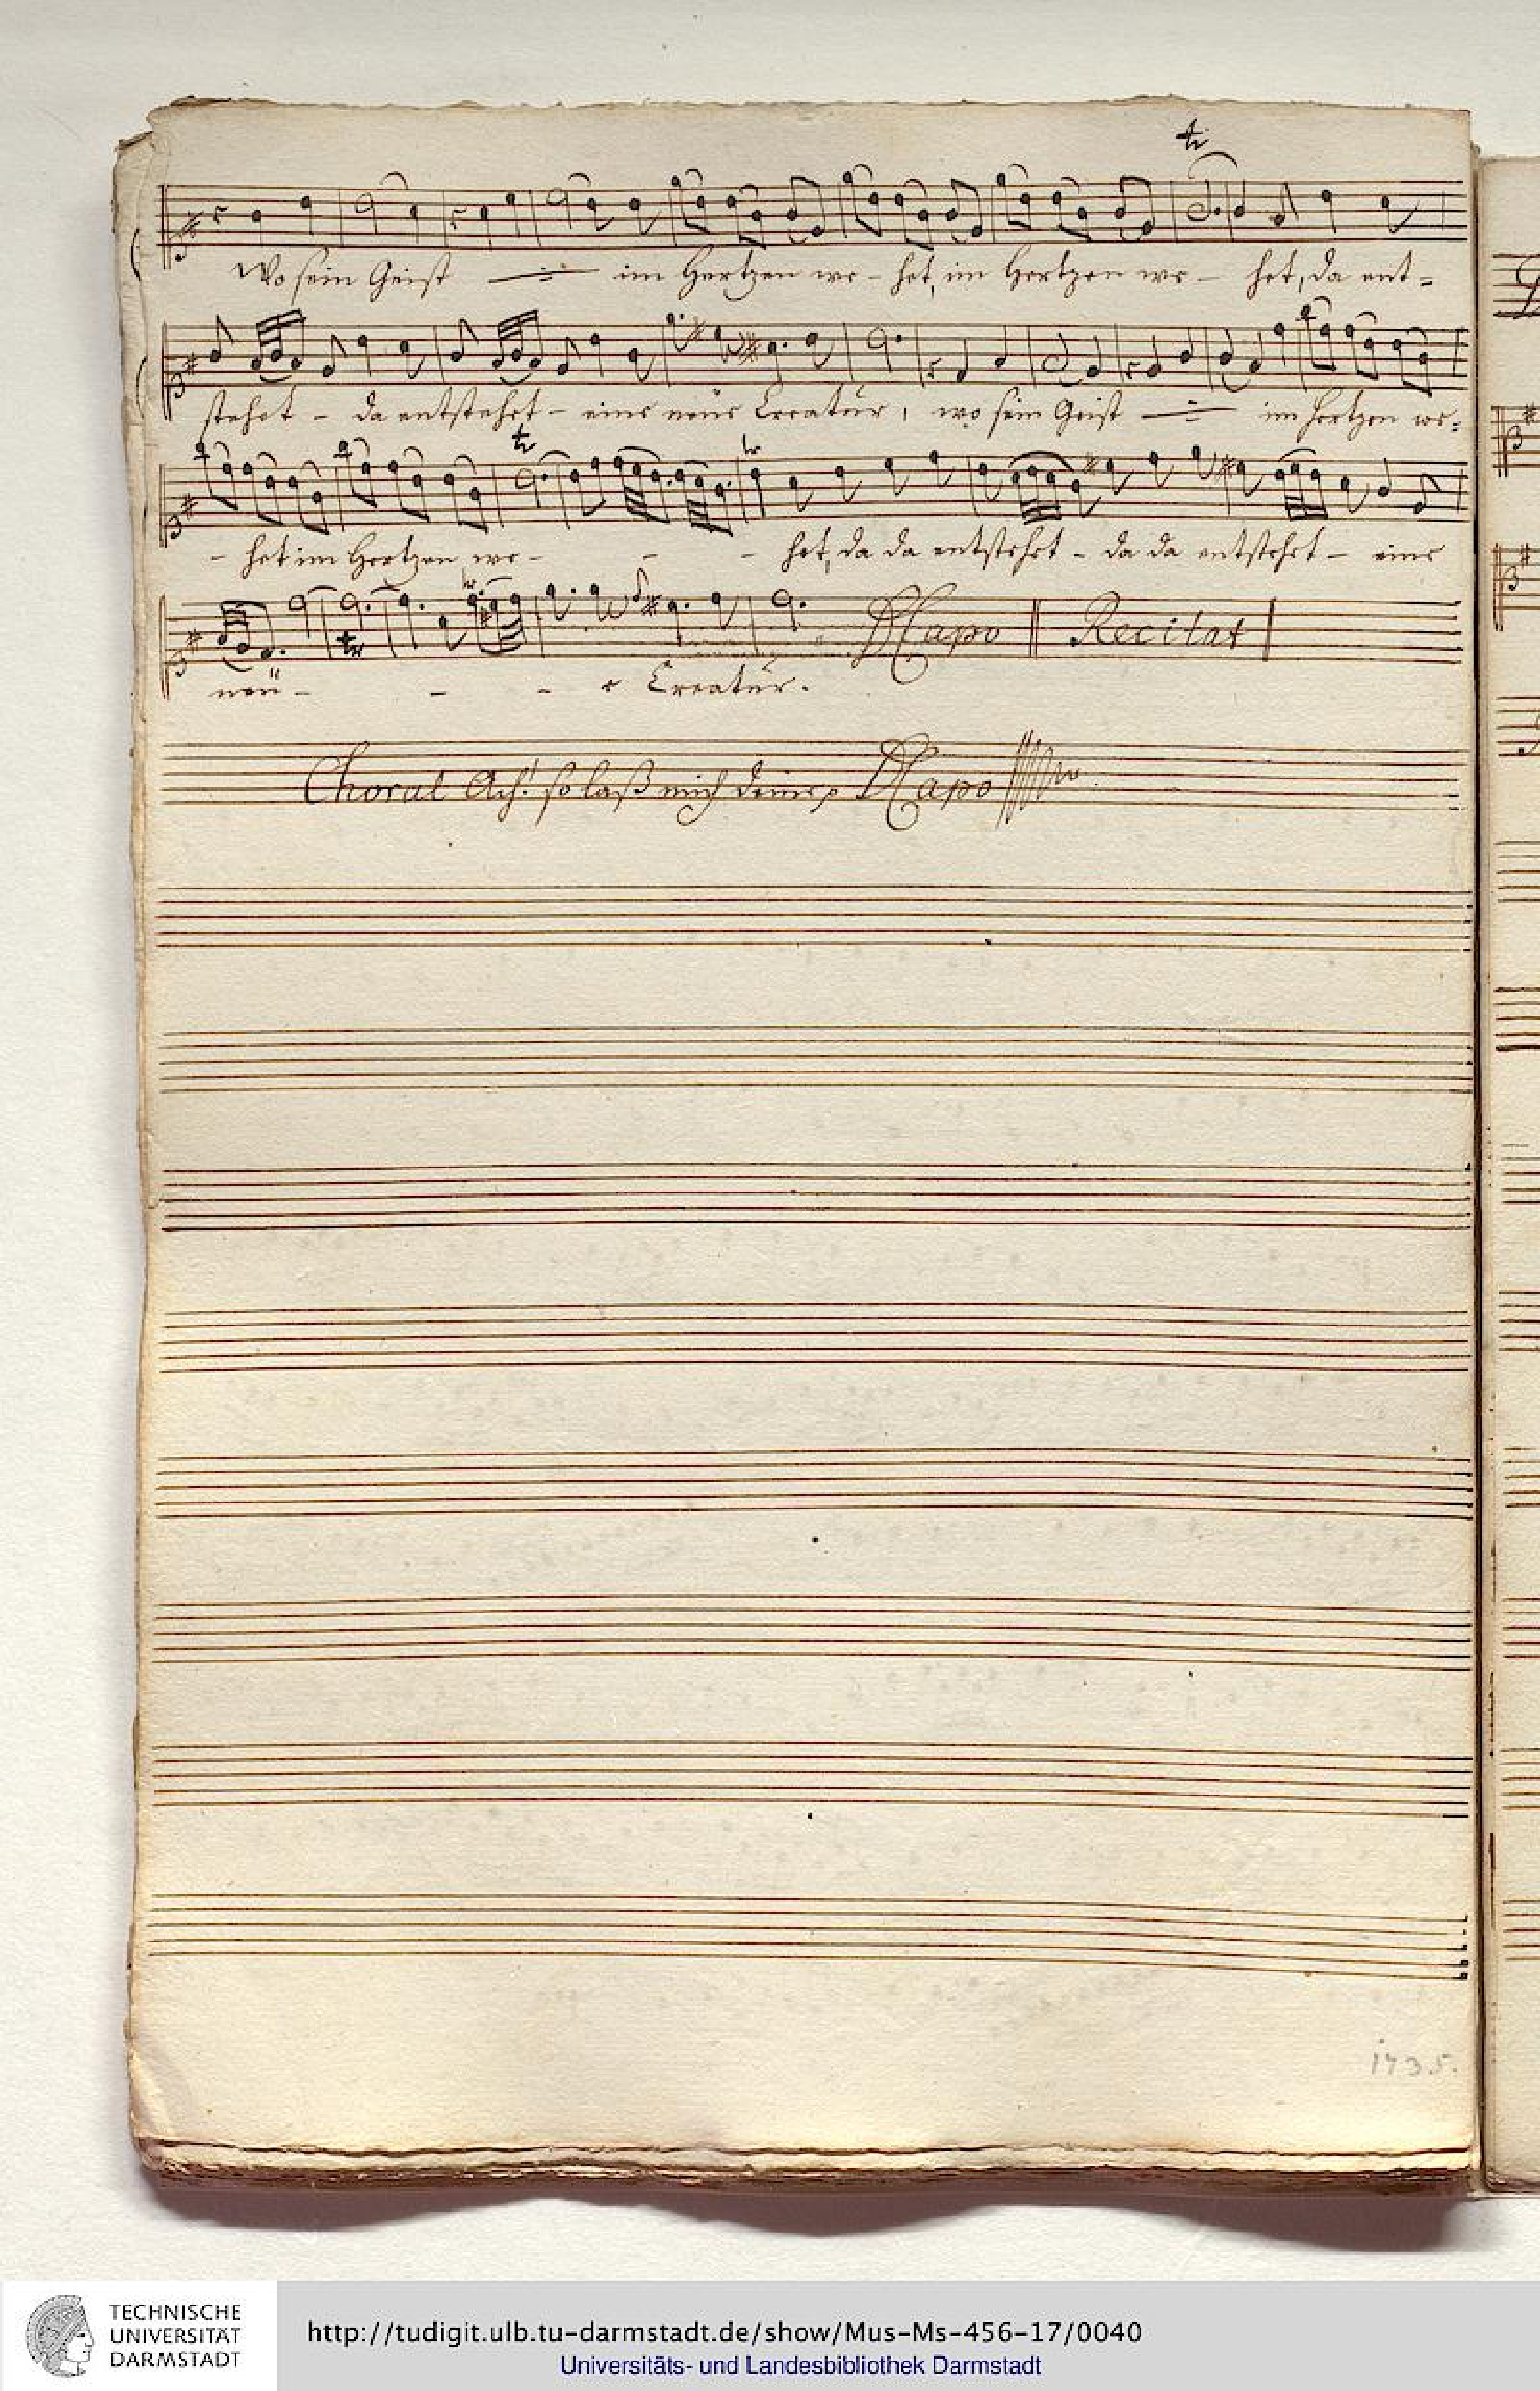 Wo sein Geist im Hertzen we - het, im Hertzen we - het, da ent=
stehet - da entstehet - eine neue Creatur, wo sein Geist im Hertzen we=
- het im Hertzen we - - - het, da da entstehet - da da entstehet - eine
D Capo Recitat
neü - - - e Creatur.
Choral Ach! so laß mich deine D Capo
1735.
TECHNISCHE
UNIVERSITÄT
DARMSTADT
http://tudigit.ulb.tu-darmstadt.de/show/Mus-Ms-456-17/0040
Universitäts- und Landesbibliothek Darmstadt